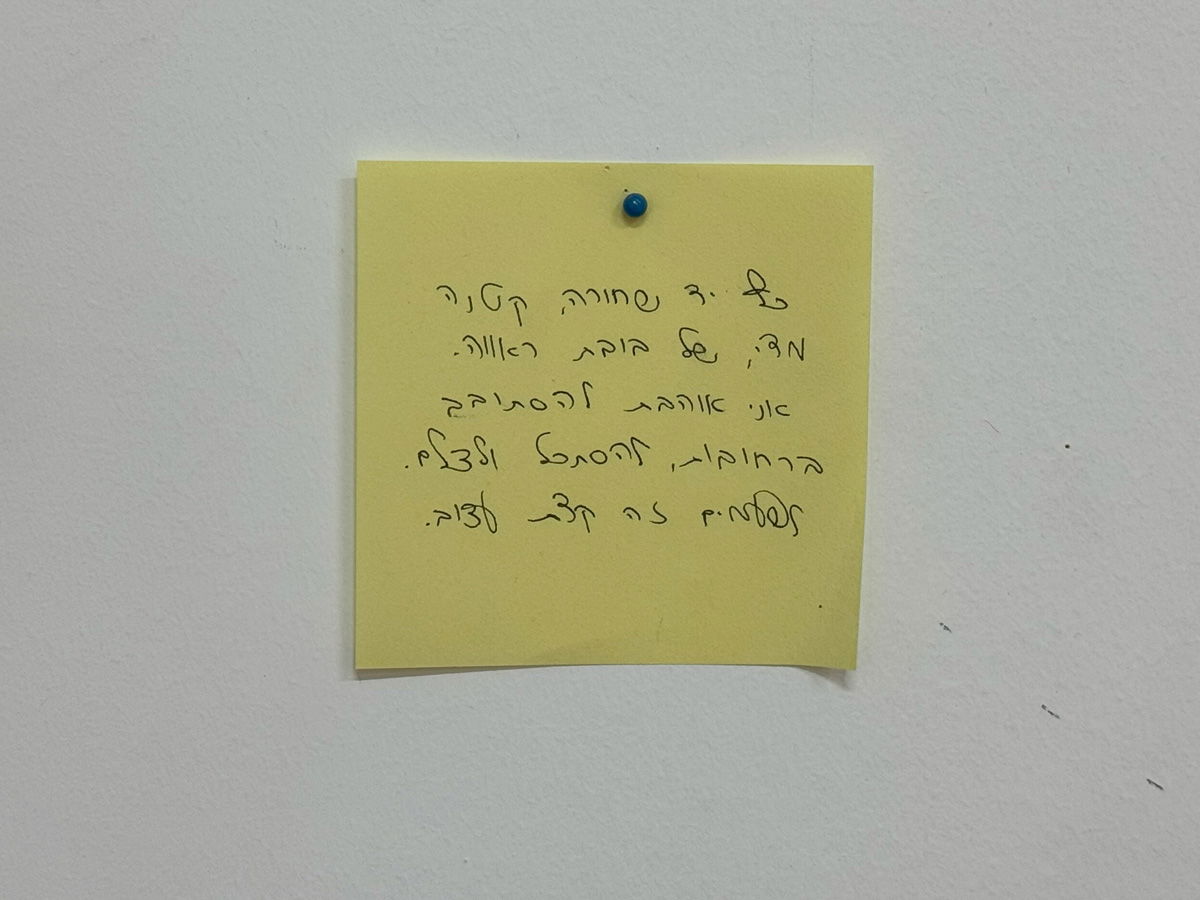 כף יד שחורה, קטנה
מדי, של בובת ראווה.
אני אוהבת להסתובב
ברחובות, להסתכל ולצלם.
לפעמים זה קצת עצוב.